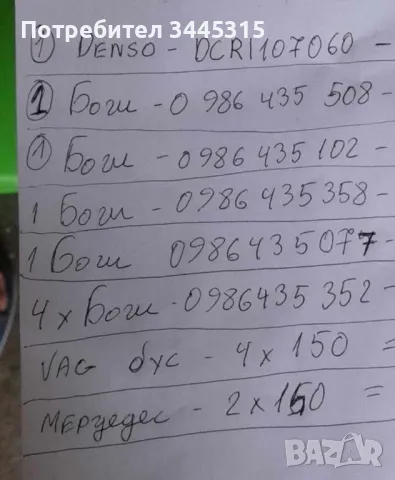 Потребител 3445315
1 DENSO - DCRI107060 -
1 Бош - 0 986 435 508 -
1 Бош - 0986 435 102 -
1 Бош - 0986 435358 -
1 Бош 0986435077 -
4 x Бош - 0986435 352 -
VAG бус - 4 x 150 =
Мерцедес - 2 x 150 =
bazar.bg